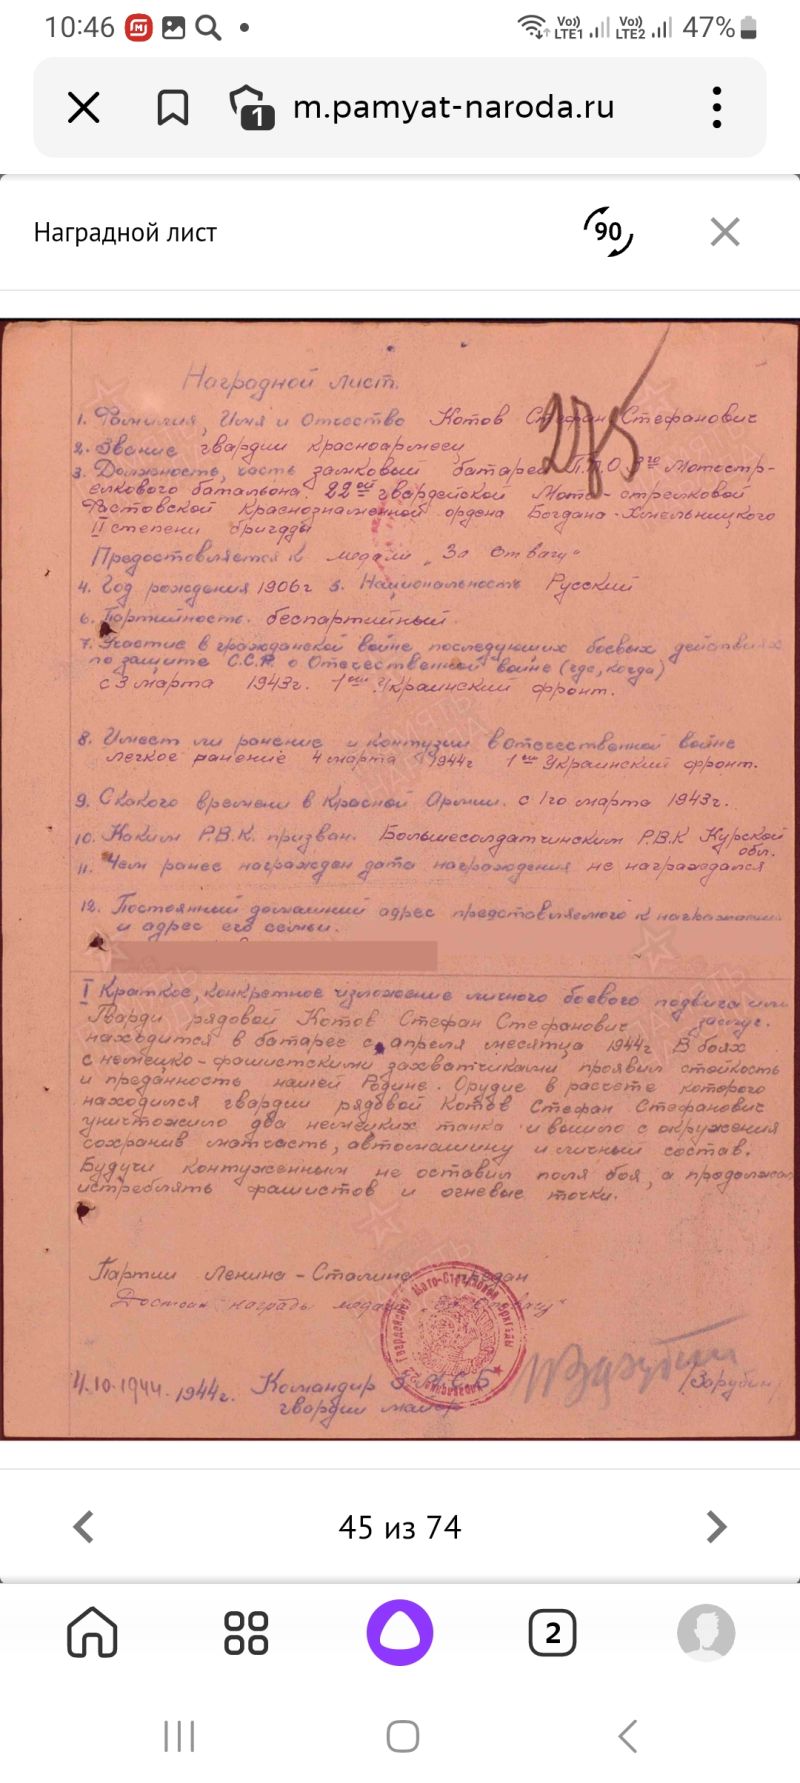 10:46
Vo)) LTE1 Vo)) LTE2 47%
1 m.pamyat-naroda.ru
Наградной лист 90
Наградной лист.
1. Фамилия, Имя и Отчество Котов Стефан Стефанович
2. Звание гвардии красноармеец
3. Должность, часть замковый батареи П.Т.О 3го Мотостр-
елкового батальона. 22ой гвардейской Мото-стрелковой
Фастовской Краснознаменной ордена Богдана-Хмельницкого
II степени бригады
Предоставляется к медали "За отвагу"
4. Год рождения 1906г 5. Национальность Русский
6. Партийность. беспартийный.
7. Участие в гражданской войне, последующих боевых действиях
по защите С.С.Р. и Отечественной войне (где, когда)
с 3 марта 1943г. 1ый Украинский фронт.
8. Имеет ли ранение и контузии в отечественной войне
легкое ранение 4 марта 1944г 1ый Украинский фронт.
9. С какого времени в Красной Армии. с 1го марта 1943г.
10. Каким Р.В.К. призван. Большесолдатчинским Р.В.К Курской
обл.
11. Чем ранее награжден дата награждения не награждался
12. Постоянный домашний адрес представляемого к награждению
и адрес его семьи.
I Краткое, конкретное изложение личного боевого подвига или
заслуг.
Гварди рядовой Котов Стефан Стефанович
находится в батарее с апреля месятца 1944г В боях
с немецко-фашистскими захватчиками проявил стойкость
и преданность нашей Родине. Орудие в расчете которого
находился гвардии рядовой Котов Стефан Стефанович
уничтожило два немецких танка и вышло с окружения
сохранив матчасть, автомашину и личный состав.
Будучи контуженным не оставил поля боя, а продолжал
истреблять фашистов и огневые точки.
Партии Ленина-Сталина предан
Достоин награды медали "За отвагу"
4.10.1944. 1944г. Командир 3 М.С.Б
гвардии майор /Зарубин/
45 из 74
2